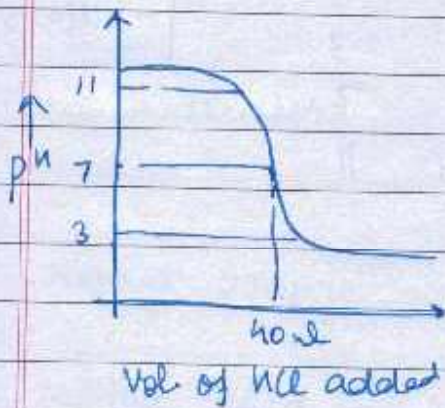 11
pH
7
3
40 ml
Vol. of HCl added